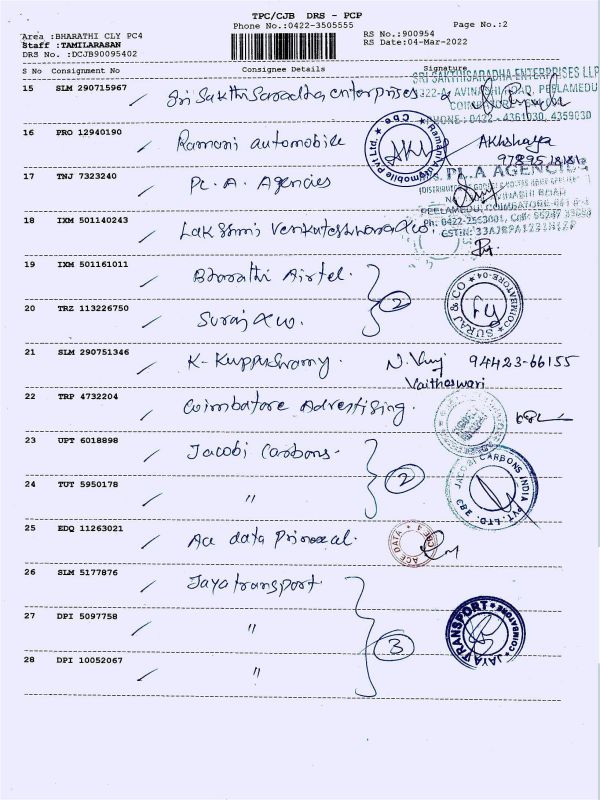 TPC/CJB DRS - PCP
Phone No.:0422-3505555
Page No.:2
Area :BHARATHI CLY PC4
Staff :TAMILARASAN
DRS No. :DCJB90095402
RS No.:900954
RS Date:04-Mar-2022
S No Consignment No Consignee Details Signature
15 SLM 290715967 Sri Sakthi Saradha enterprises
SRI SAKTHISARADHA ENTERPRISES LLP
AVINASHI ROAD, PEELAMEDU
PHONE : 0422 - 4361030, 4359030
16 PRO 12940190 Ramani automobile
Ramani Automobile Pvt Ltd. * Cbe *
Akhshaya
17 TNJ 7323240 PL. A. Agencies
PL.A AGENCIES
PEELAMEDU, COIMBATORE-641
Ph: 0422-2563801, Cell: 95247
GSTN: 33
18 IXM 501140243 Lakshmi Venkateshwara & co.
19 IXM 501161011 Bharathi Airtel.
20 TRZ 113226750 Suraj & co.
2
SURAJ & CO * COIMBATORE-04 *
21 SLM 290751346 K. Kuppuswamy. 94423-66155
Vaitheswari
22 TRP 4732204 Coimbatore Advertising.
23 UPT 6018898 Jacobi Carbons.
24 TUT 5950178 "
2
JACOBI CARBONS INDIA PVT. LTD. * CBE *
25 EDQ 11263021 Ace data
ACE DATA
26 SLM 5177876 Jaya transport
27 DPI 5097758 "
28 DPI 10052067 "
3
JAYA TRANSPORT * COIMBATORE *